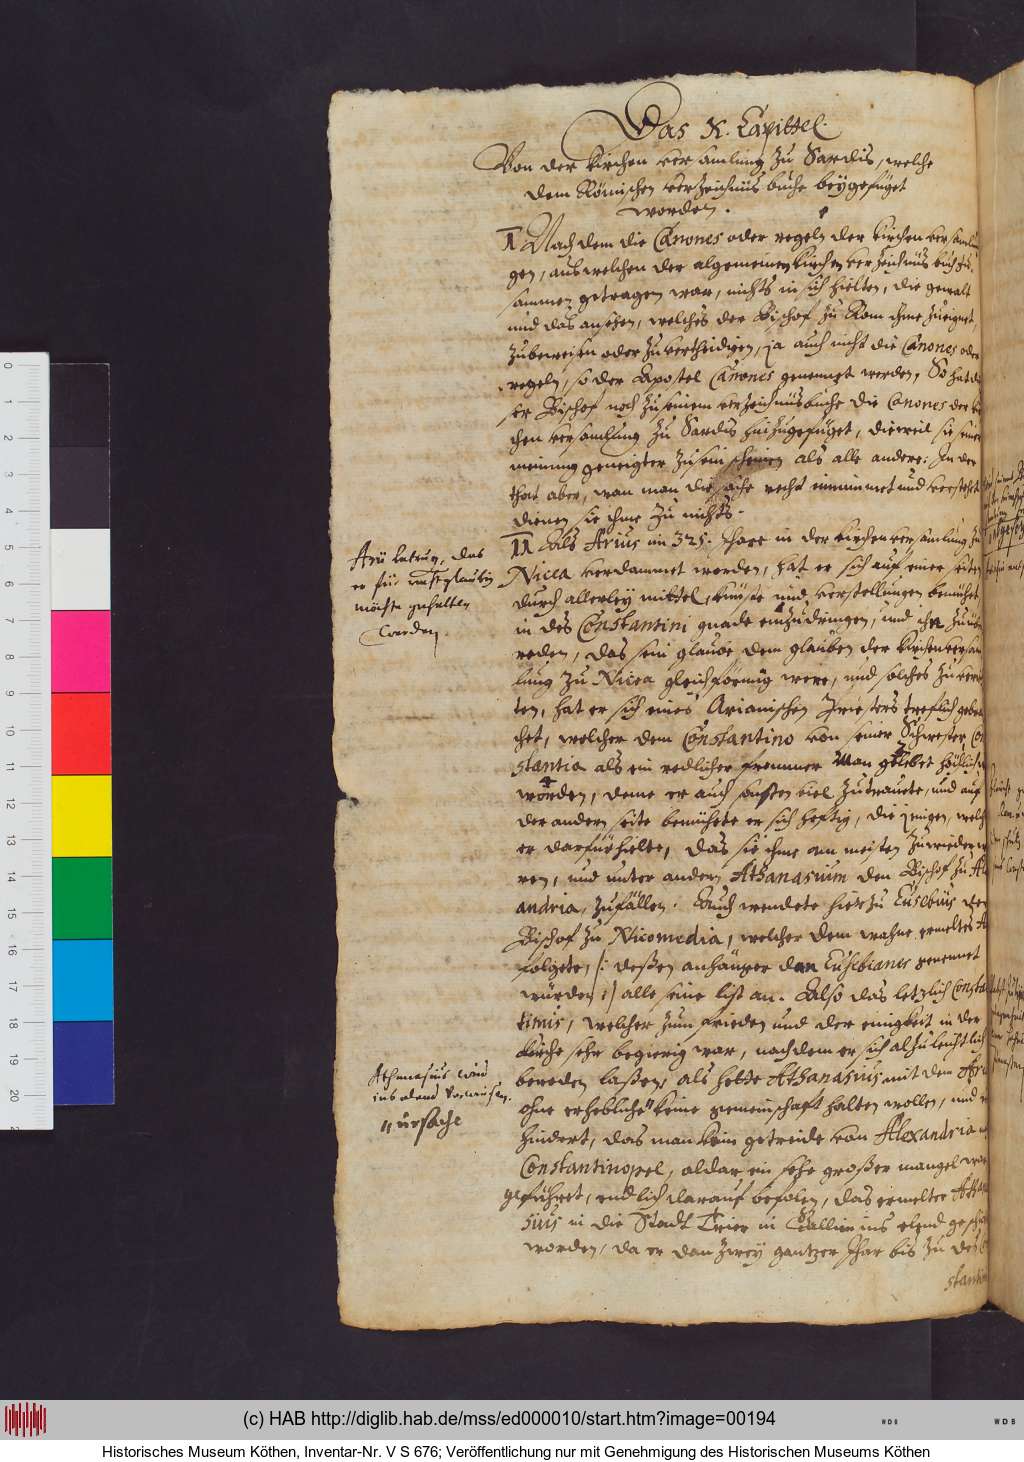 Das X. Capittel.
Von der Kirchen versamlung zu Sardis, welche
dem Römischen verzeichnüs buche beygefüget
worden.
I Nach dem die Canones oder regeln der Kirchen versamlun
gen, aus welchen der algemeinen Kirchen verzeichnüs buch zu
sammen getragen war, nichts in sich hielten, die gewalt
und das ansehen, welches der Bischof zu Rom ihme zueignet,
zubeweisen oder zu vertheidigen, ja auch nicht die Canones oder
regeln, so der Apostel Canones genennet werden, So hat di
ser Bischof noch zu seinem verzeichnüsbuche die Canones der Kir
chen versamlung zu Sardis hinzugefüget, dieweil sie seiner
meinung geneigter zu sein scheinen als alle andere: In der
that aber, wan man die sache recht einnimmet und verstehet
dienen sie ihme zu nichts.
II Als Arius im 325. Jhare in der Kirchen versamlung zu
Nicea verdammet worden, hat er sich auf einer seiten
durch allerley mittel, künste und verstellungen bemühet
in des Constantini gnade einzudringen, und ihn zu über
reden, das sein glaube dem glauben der Kirchen versam
lung zu Nicea gleichförmig were, und solches zu verrich
ten, hat er sich eines Arianischen Priesters treflich gebrau
chet, welcher dem Constantino von seiner Schwester Con
stantia als ein redlicher frommer Man gelobet
worden, deme er auch sonsten viel zutrauete, und auf
der andern seite bemühete er sich heftig, die jenigen, welche
er darfür hielte, das sie ihme am meisten zuwieder we
ren, und unter andern Athanasium den Bischof zu Alex
andria, zufällen. Auch wendete hierzu Eusebius der
Bischof zu Nicomedia, welcher dem wahne ermeltes A
folgete, /: deßen anhänger dan Eusebianer genennet
würden :/ alle seine list an. Also das letzlich Constan
tinus, welcher zum frieden und der einigkeit in der
Kirche sehr begierig war, nachdem er sich alzu leichtlich
bereden laßen, als hette Athanasius mit dem Ari
ohne erhebliche keine gemeinschaft halten wollen, und ver
hindert, das man kein getreide von Alexandria n
Constantinopel, aldar ein sehr großer mangel war
geführet, endlich darauf befolen, das ermelter Athana
sius in die Stadt Trier in Gallien ins elend geschicket
worden, da er dan zwey gantzer Jhar bis zu des Con
stantin
Arii betrug, das
er für rechtglaubig
möchte gehalten
werden.
Athanasius wird
ins elend verwiesen.
ursache
(c) HAB http://diglib.hab.de/mss/ed000010/start.htm?image=00194
WDB
WDB
Historisches Museum Köthen, Inventar-Nr. V S 676; Veröffentlichung nur mit Genehmigung des Historischen Museums Köthen